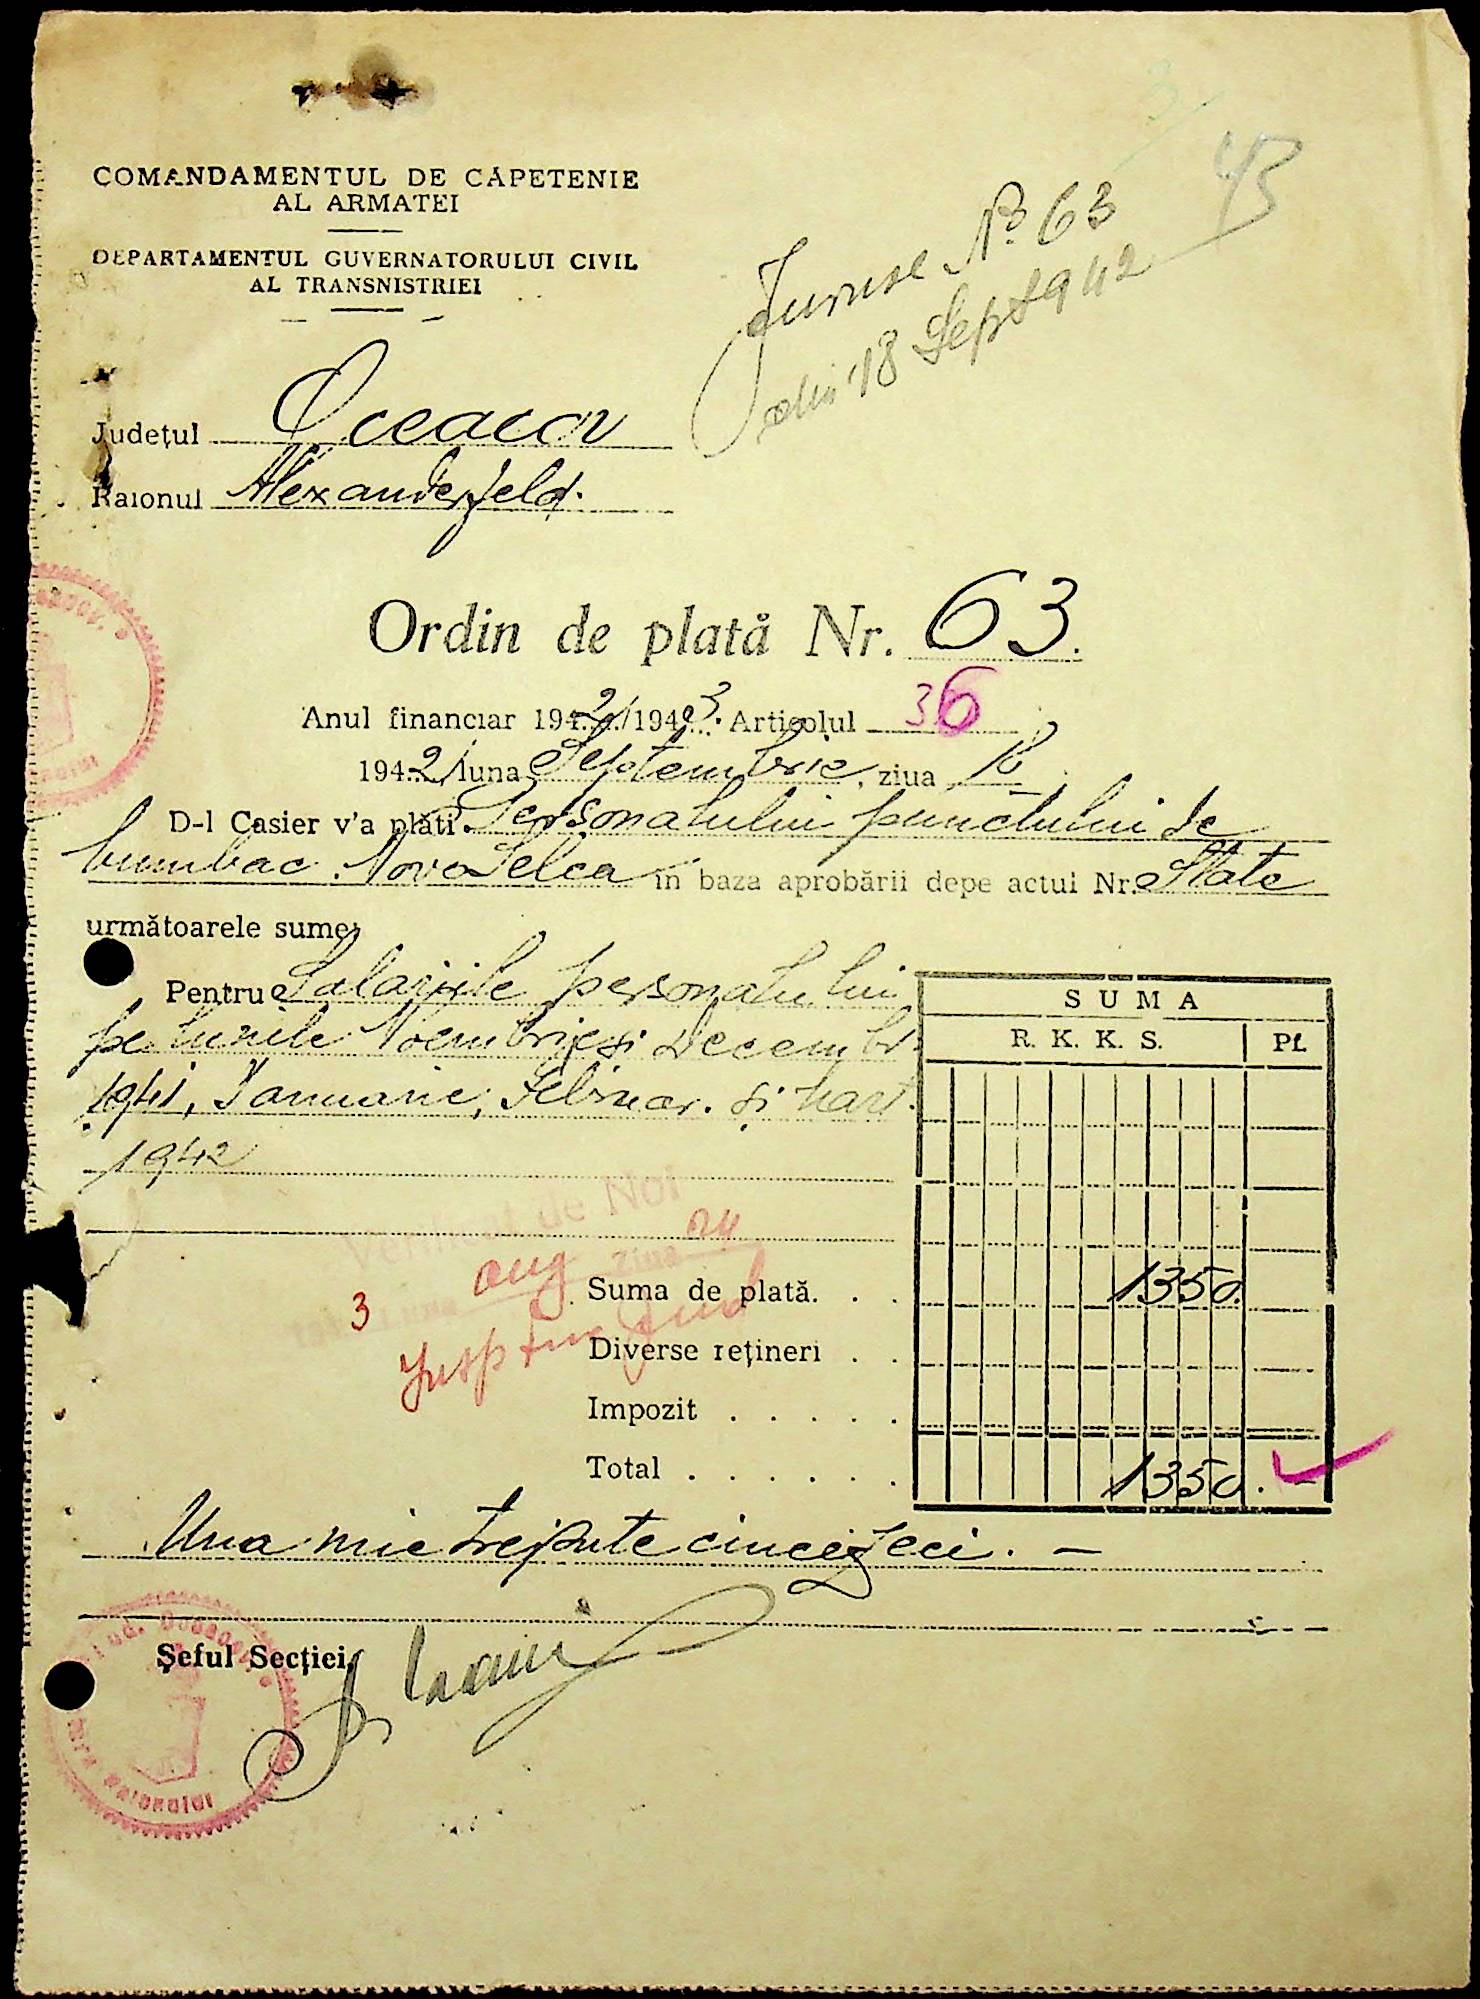 COMANDAMENTUL DE CAPETENIE
AL ARMATEI
DEPARTAMENTUL GUVERNATORULUI CIVIL
AL TRANSNISTRIEI
45
No 63
din 18 Sept 1942
Județul Oceacov
Raionul Alexanderfeld.
Ordin de plată Nr. 63.
Anul financiar 1942/1943. Articolul 36
1942 luna Septembrie, ziua 18
D-l Casier v'a plăti Personalului punctului de
bumbac Novo Selca în baza aprobării depe actul Nr. State
următoarele sume:
Pentru Salariile personalului
pe lunile Noembrie și Decembr.
1941, Ianuarie, Februar. și Mart.
1942
SUMA
R. K. K. S. Pf.
Verificat de Noi
3 luna aug ziua 24
Suma de plată. . . 1350.
Diverse rețineri . .
Impozit . . . . .
Total . . . . . . 1350. -
Una mie treisute cincizeci. -
Șeful Secției,
Jud. Oceacov
Raionului